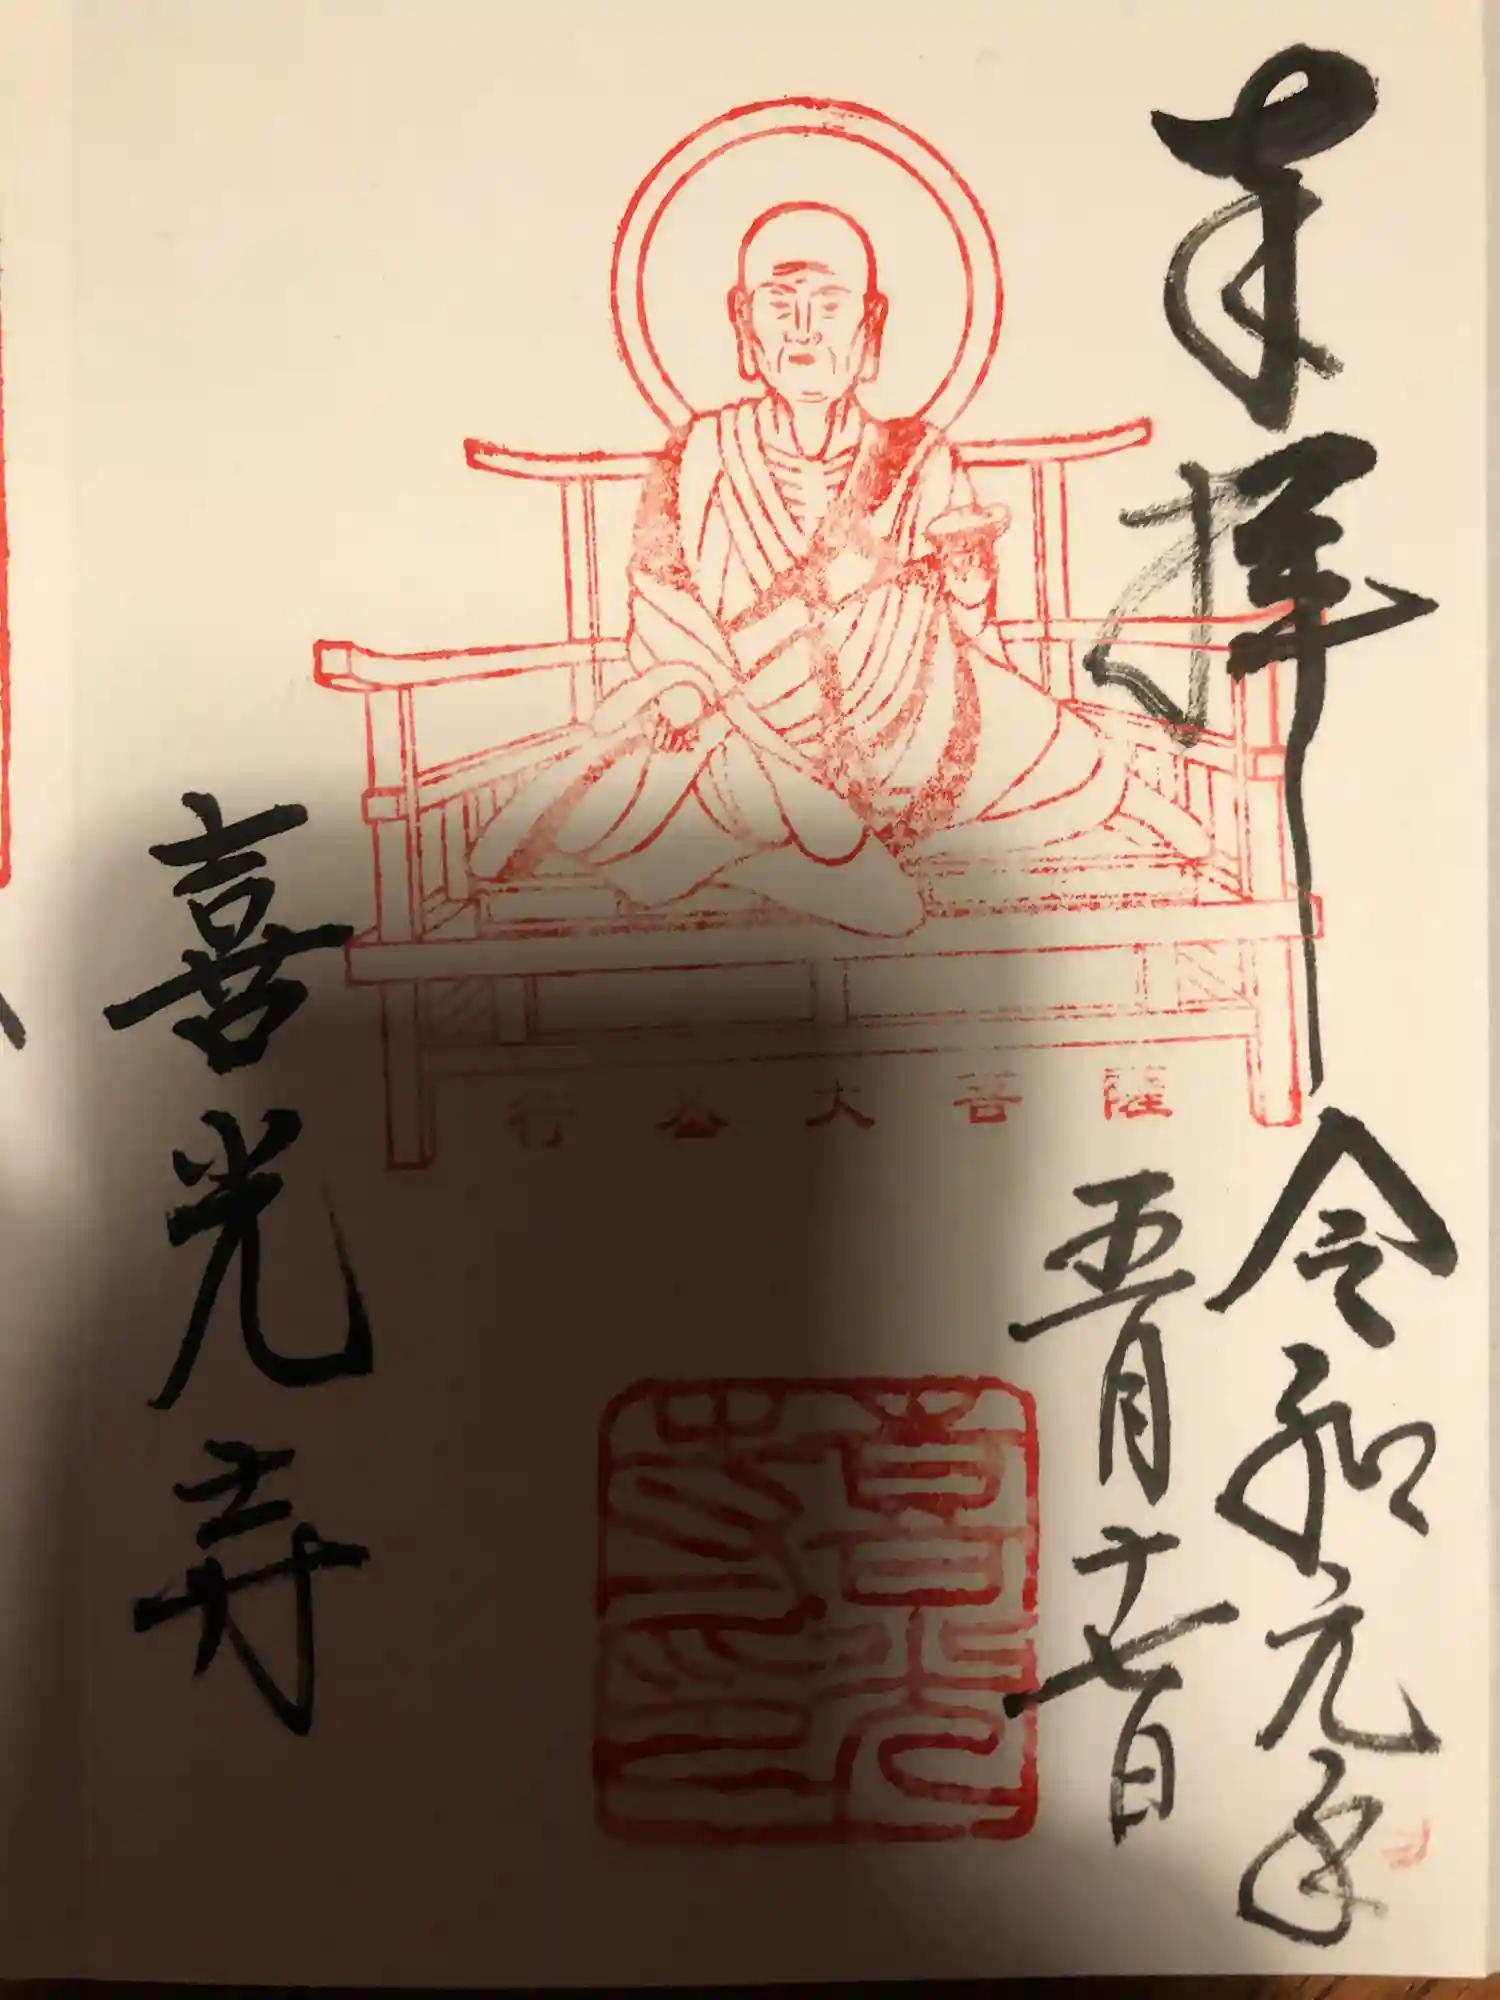 奉拝
令和元年
五月十七日
行基大菩薩
喜光寺